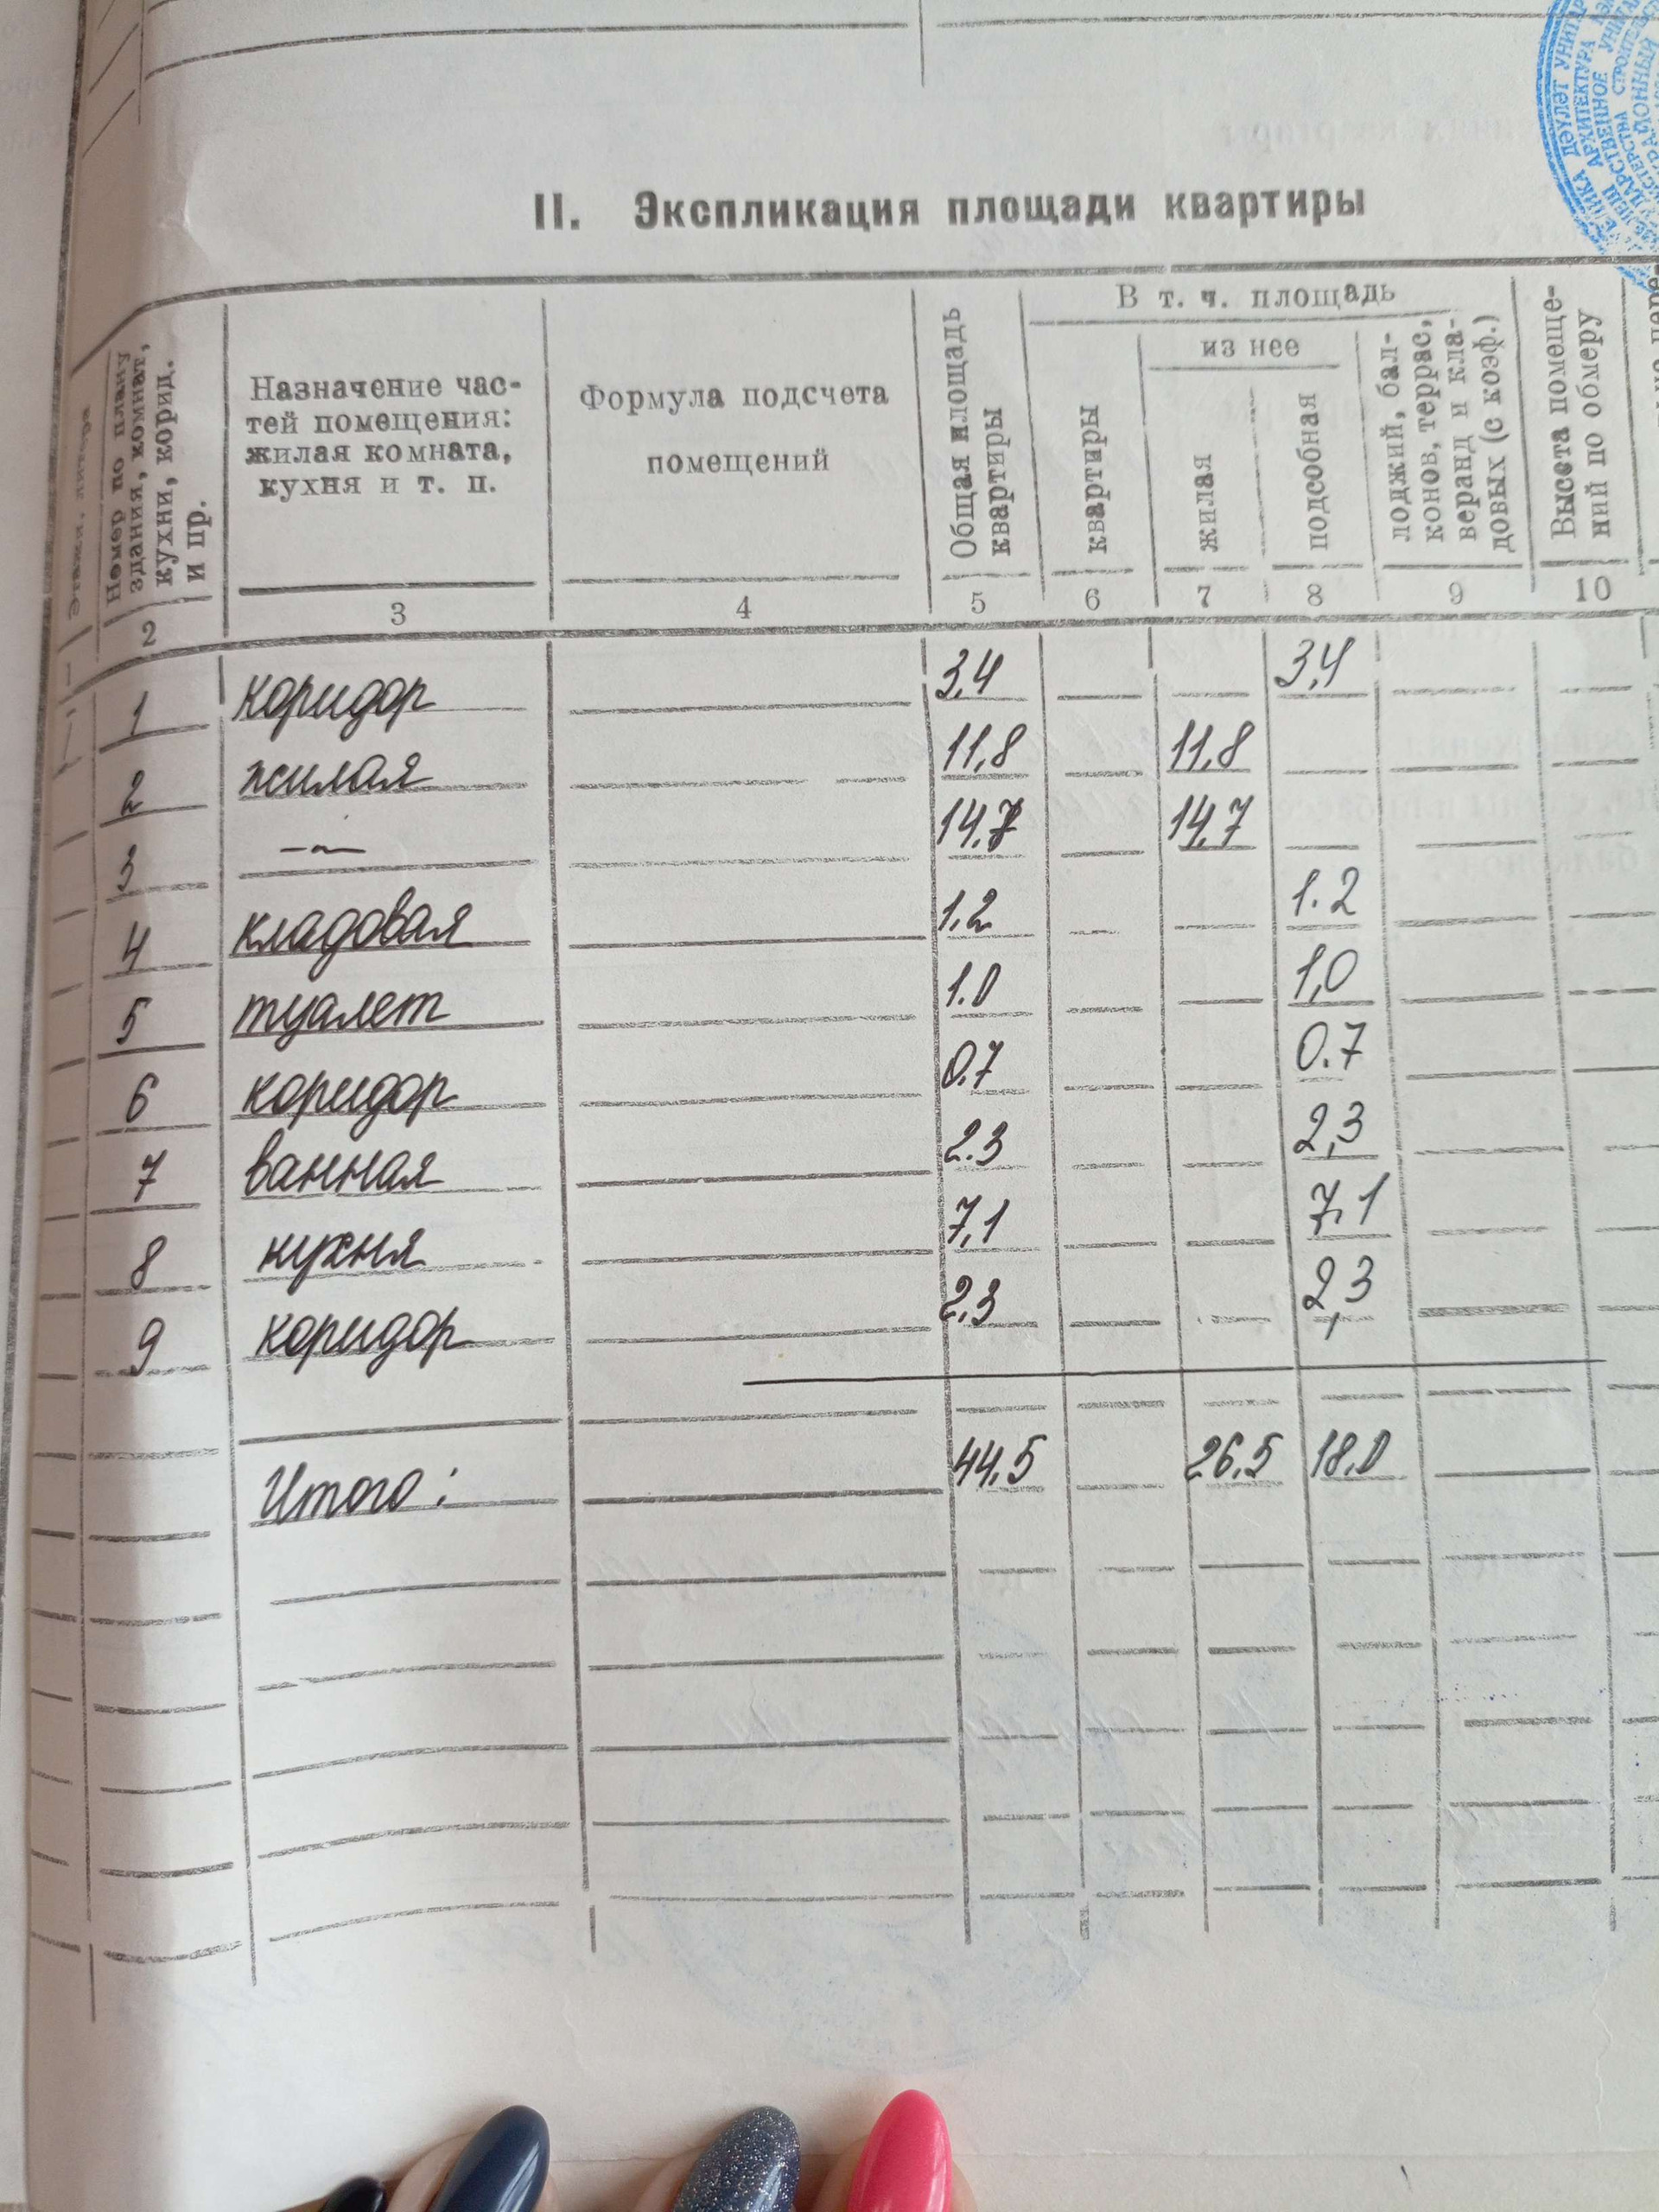 II. Экспликация площади квартиры
Этажи, литера
Номер по плану
здания, комнат,
кухни, корид.
и пр.
Назначение час-
тей помещения:
жилая комната,
кухня и т. п.
Формула подсчета
помещений
Общая площадь
квартиры
В т. ч. площадь
квартиры
из нее
жилая
подсобная
лоджий, бал-
конов, террас,
веранд и кла-
довых (с коэф.)
Высота помеще-
ний по обмеру
2 3 4 5 6 7 8 9 10
1 коридор 3,4 3,4
2 жилая 11,8 11,8
3 —〃— 14,7 14,7
4 кладовая 1,2 1.2
5 туалет 1.0 1,0
6 коридор 0.7 0.7
7 ванная 2.3 2,3
8 кухня 7,1 7,1
9 коридор 2,3 2,3
Итого: 44,5 26,5 18,0
ДӘҮЛӘТ
АРХИТЕКТУРА
СТРОИТЕЛЬ